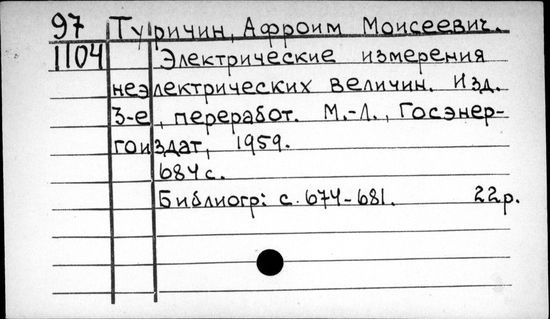 97 Туричин, Афроим Моисеевич.
1104 Электрические измерения
неэлектрических величин. Изд.
3-е, переработ. М.-Л., Госэнер-
гоиздат, 1959.
684с.
Библиогр: с. 674-681. 22р.